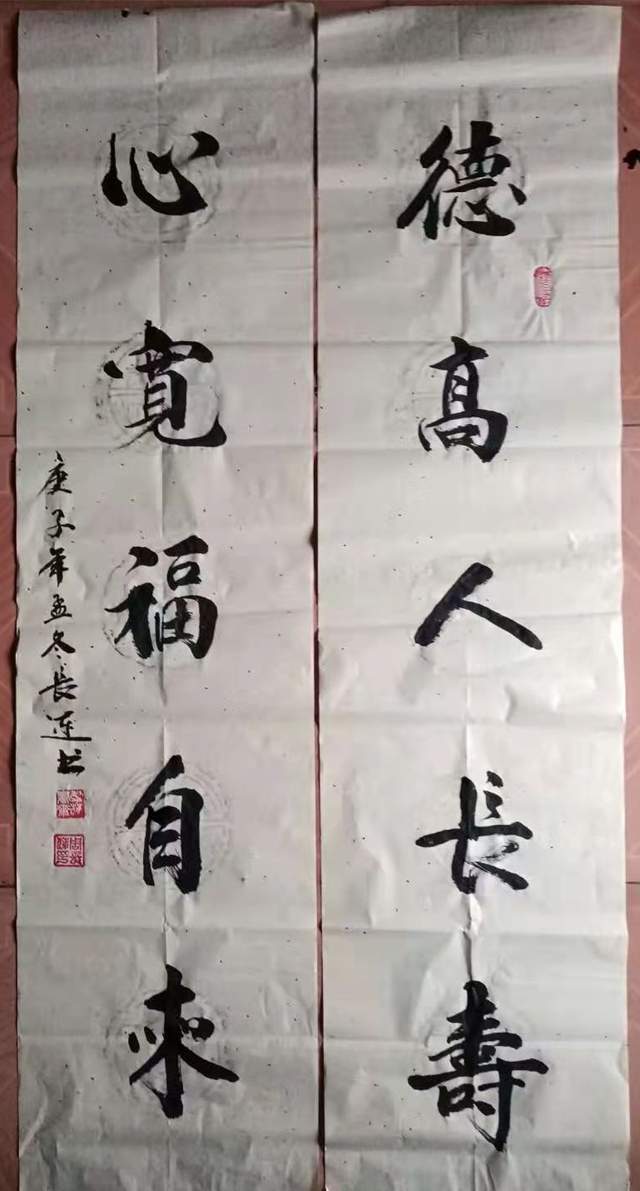 德高人長壽
心寬福自来
庚子年孟冬長連书